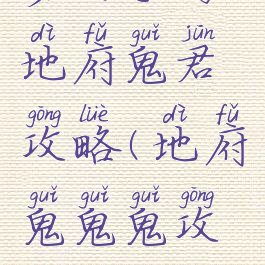 dì fǔ guǐ jūn
地府鬼君
gōng lüè dì fǔ
攻略(地府
guǐ guǐ guǐ gōng
鬼鬼鬼攻